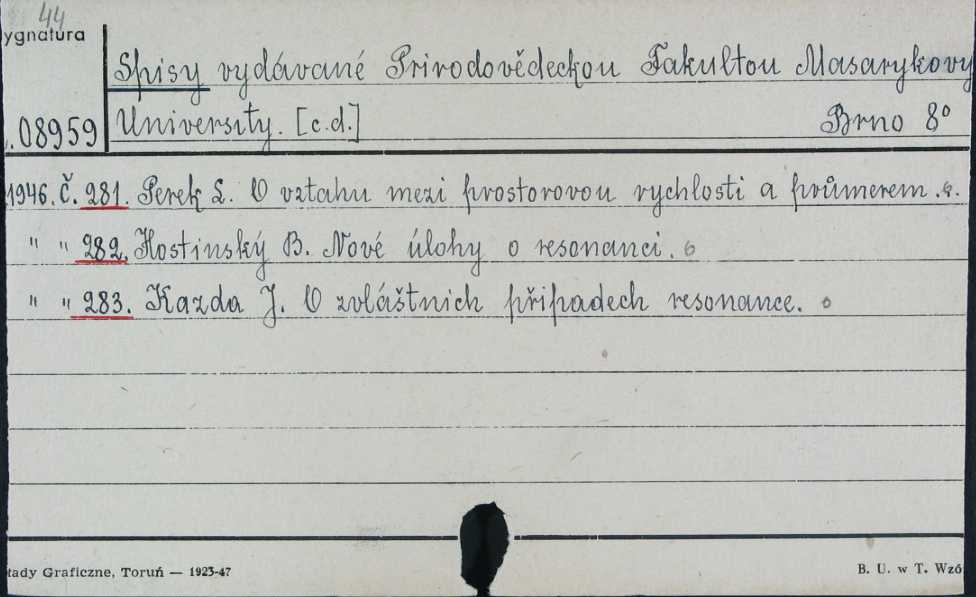 44
ygnatura
Spisy vydávané Prirodovědeckou Fakultou Masarykovy
.08959 University. [c.d.] Brno 8°
1946. Č. 281. Perek L. O vztahu mezi prostorovou rychlosti a průmerem.
" " 282. Hostinský B. Nové úlohy o resonanci.
" " 283. Kazda J. O zvláštnich připadech resonance.
tady Graficzne, Toruń — 1923-47
B. U. w T. Wzó